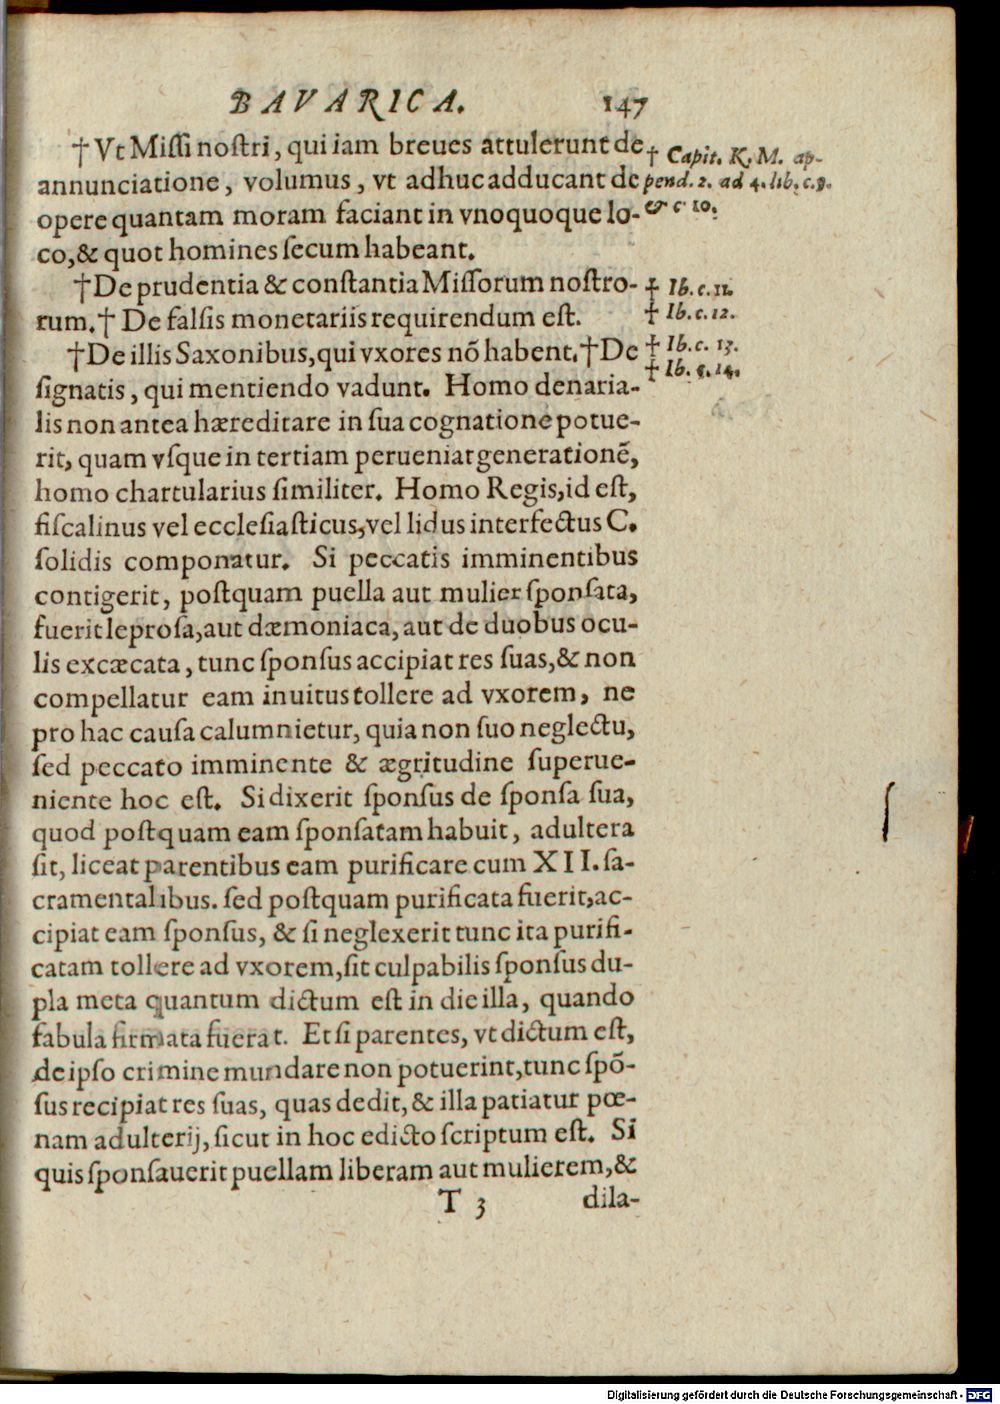 BAVARICA. 147
†Vt Miſſi noſtri, qui iam breues attulerunt de
annunciatione, volumus, vt adhuc adducant de
opere quantam moram faciant in vnoquoque lo-
co, & quot homines ſecum habeant.
†De prudentia & conſtantia Miſſorum noſtro-
rum. †De falſis monetariis requirendum eſt.
†De illis Saxonibus, qui vxores nõ habent. †De
ſignatis, qui mentiendo vadunt. Homo denaria-
lis non antea hæreditare in ſua cognatione potue-
rit, quam vſque in tertiam perueniat generationẽ,
homo chartularius ſimiliter. Homo Regis, id eſt,
fiſcalinus vel eccleſiaſticus, vel lidus interfectus C.
ſolidis componatur. Si peccatis imminentibus
contigerit, poſtquam puella aut mulier ſponſata,
fuerit leproſa, aut dæmoniaca, aut de duobus ocu-
lis excæcata, tunc ſponſus accipiat res ſuas, & non
compellatur eam inuitus tollere ad vxorem, ne
pro hac cauſa calumnietur, quia non ſuo neglectu,
ſed peccato imminente & ægritudine ſuperue-
niente hoc eſt. Si dixerit ſponſus de ſponſa ſua,
quod poſtquam eam ſponſatam habuit, adultera
ſit, liceat parentibus eam purificare cum XII. ſa-
cramentalibus. ſed poſtquam purificata fuerit, ac-
cipiat eam ſponſus, & ſi neglexerit tunc ita purifi-
catam tollere ad vxorem, ſit culpabilis ſponſus du-
pla meta quantum dictum eſt in die illa, quando
fabula firmata fuerat. Et ſi parentes, vt dictum eſt,
de ipſo crimine mundare non potuerint, tunc ſpõ-
ſus recipiat res ſuas, quas dedit, & illa patiatur pœ-
nam adulterij, ſicut in hoc edicto ſcriptum eſt. Si
quis ſponſauerit puellam liberam aut mulierem, &
T 3 dila-
† Capit. K. M. ap-
pend. 2. ad 4. lib. c. 9.
& c 10.
† Ib. c. 11.
† Ib. c. 12.
† Ib. c. 13.
† Ib. c. 14.
Digitalisierung gefördert durch die Deutsche Forschungsgemeinschaft - DFG